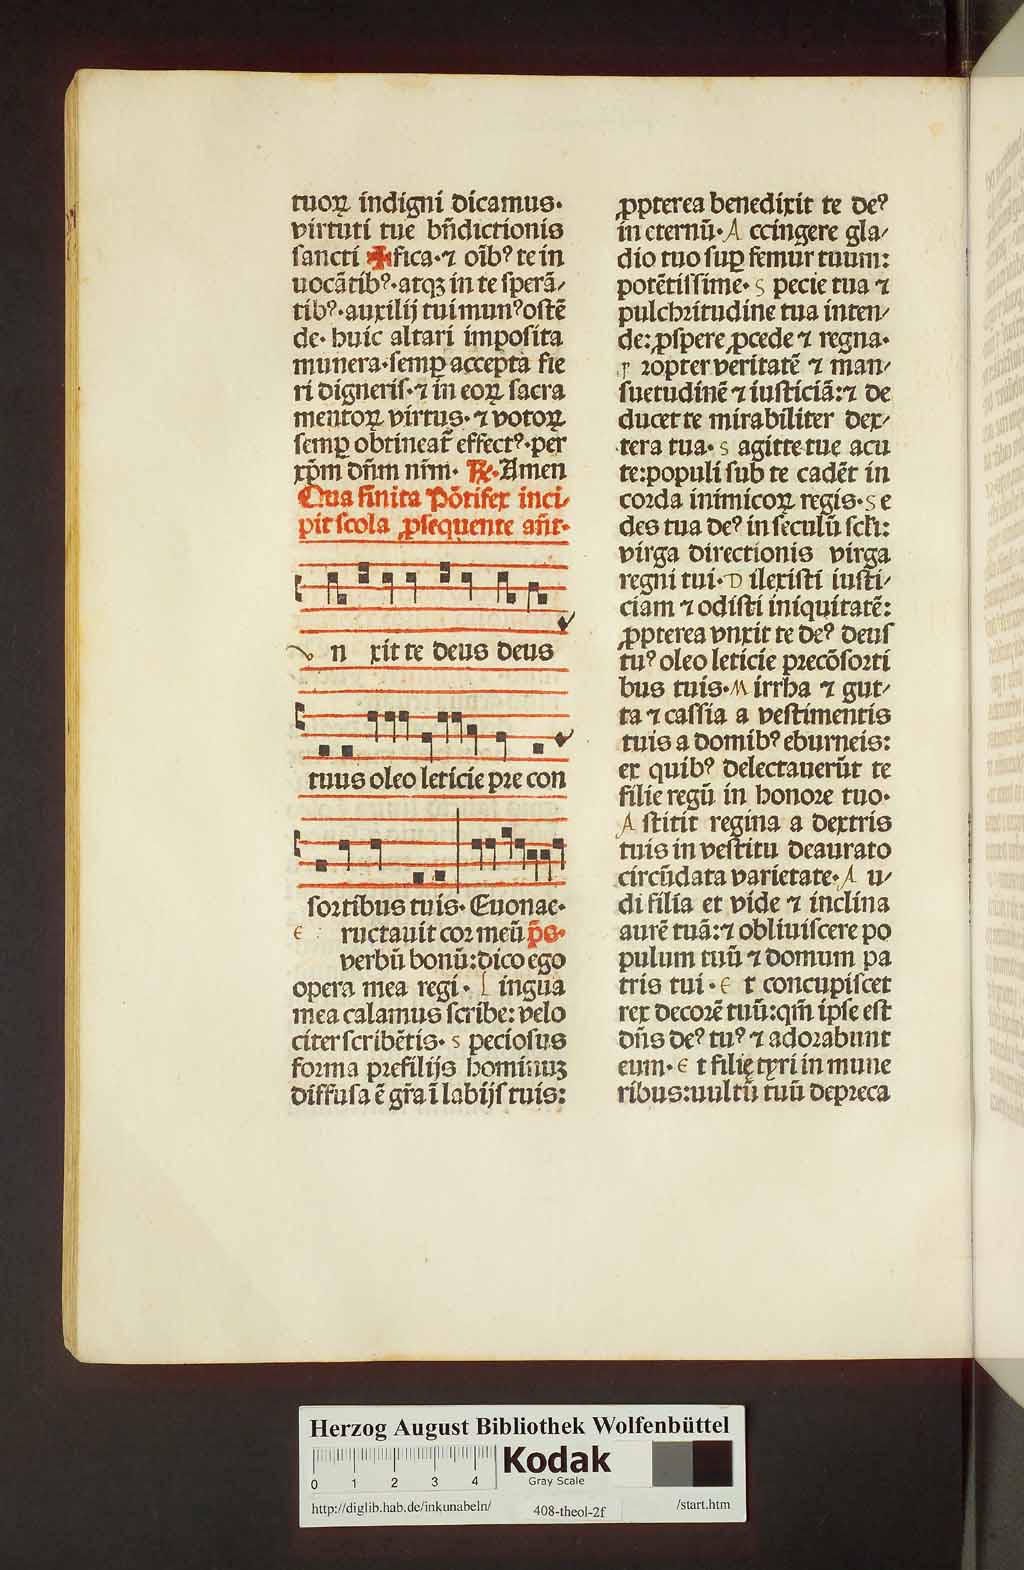 tuoꝝ indigni dicamus·
virtuti tue bñdictionis
sancti ✠fica·⁊ oĩbꝰ te in
uocãtibꝰ·atqꝫ in te sperã/
tibꝰ·auxilij tui munꝰ ostẽ
de· huic altari imposita
munera·semꝑ accepta fie
ri digneris·⁊ in eoꝝ sacra
mentoꝝ virtus·⁊ votoꝝ
semꝑ obtineat̃ effectꝰ·per
xp̃m dñm nr̃m· ℟·Amen
Qua finita Põtifex inci/
pit scola ꝓsequente añt·
n xit te deus deus
tuus oleo leticie pre con
sortibus tuis· Euonae·
E ructauit cor meũ p̃s·
verbũ bonũ:dico ego
opera mea regi· L ingua
mea calamus scribe: velo
citer scribẽtis· S peciosus
forma prefilijs hominuꝫ
diffusa ẽ gr̃a ĩ labijs tuis:
ꝓpterea benedixit te deꝰ
in eternũ· A ccingere gla/
dio tuo suꝑ femur tuum:
potẽtissime· S pecie tua ⁊
pulchritudine tua inten/
de:ꝓspere ꝓcede ⁊ regna·
P ropter veritatẽ ⁊ man/
suetudinẽ ⁊ iusticiã:⁊ de
ducet te mirabiliter dex/
tera tua· S agitte tue acu
te:populi sub te cadẽt in
corda inimicoꝝ regis· S e
des tua deꝰ in seculũ scł̃i:
virga directionis virga
regni tui· D ilexisti iusti/
ciam ⁊ odisti iniquitatẽ:
ꝓpterea vnxit te deꝰ deus
tuꝰ oleo leticie precõsorti
bus tuis· M irrha ⁊ gut/
ta ⁊ cassia a vestimentis
tuis a domibꝰ eburneis:
ex quibꝰ delectauerũt te
filie regũ in honore tuo·
A stitit regina a dextris
tuis in vestitu deaurato
circũdata varietate· A u/
di filia et vide ⁊ inclina
aurẽ tuã:⁊ obliuiscere po
pulum tuũ ⁊ domum pa
tris tui· E t concupiscet
rex decorẽ tuũ:qm̃ ipse est
dñs deꝰ tuꝰ ⁊ adorabunt
eum· E t filię tyri in mune
ribus:uultũ tuũ depreca
Herzog August Bibliothek Wolfenbüttel
0 1 2 3 4
Kodak
Gray Scale
http://diglib.hab.de/inkunabeln/
408-theol-2f
/start.htm